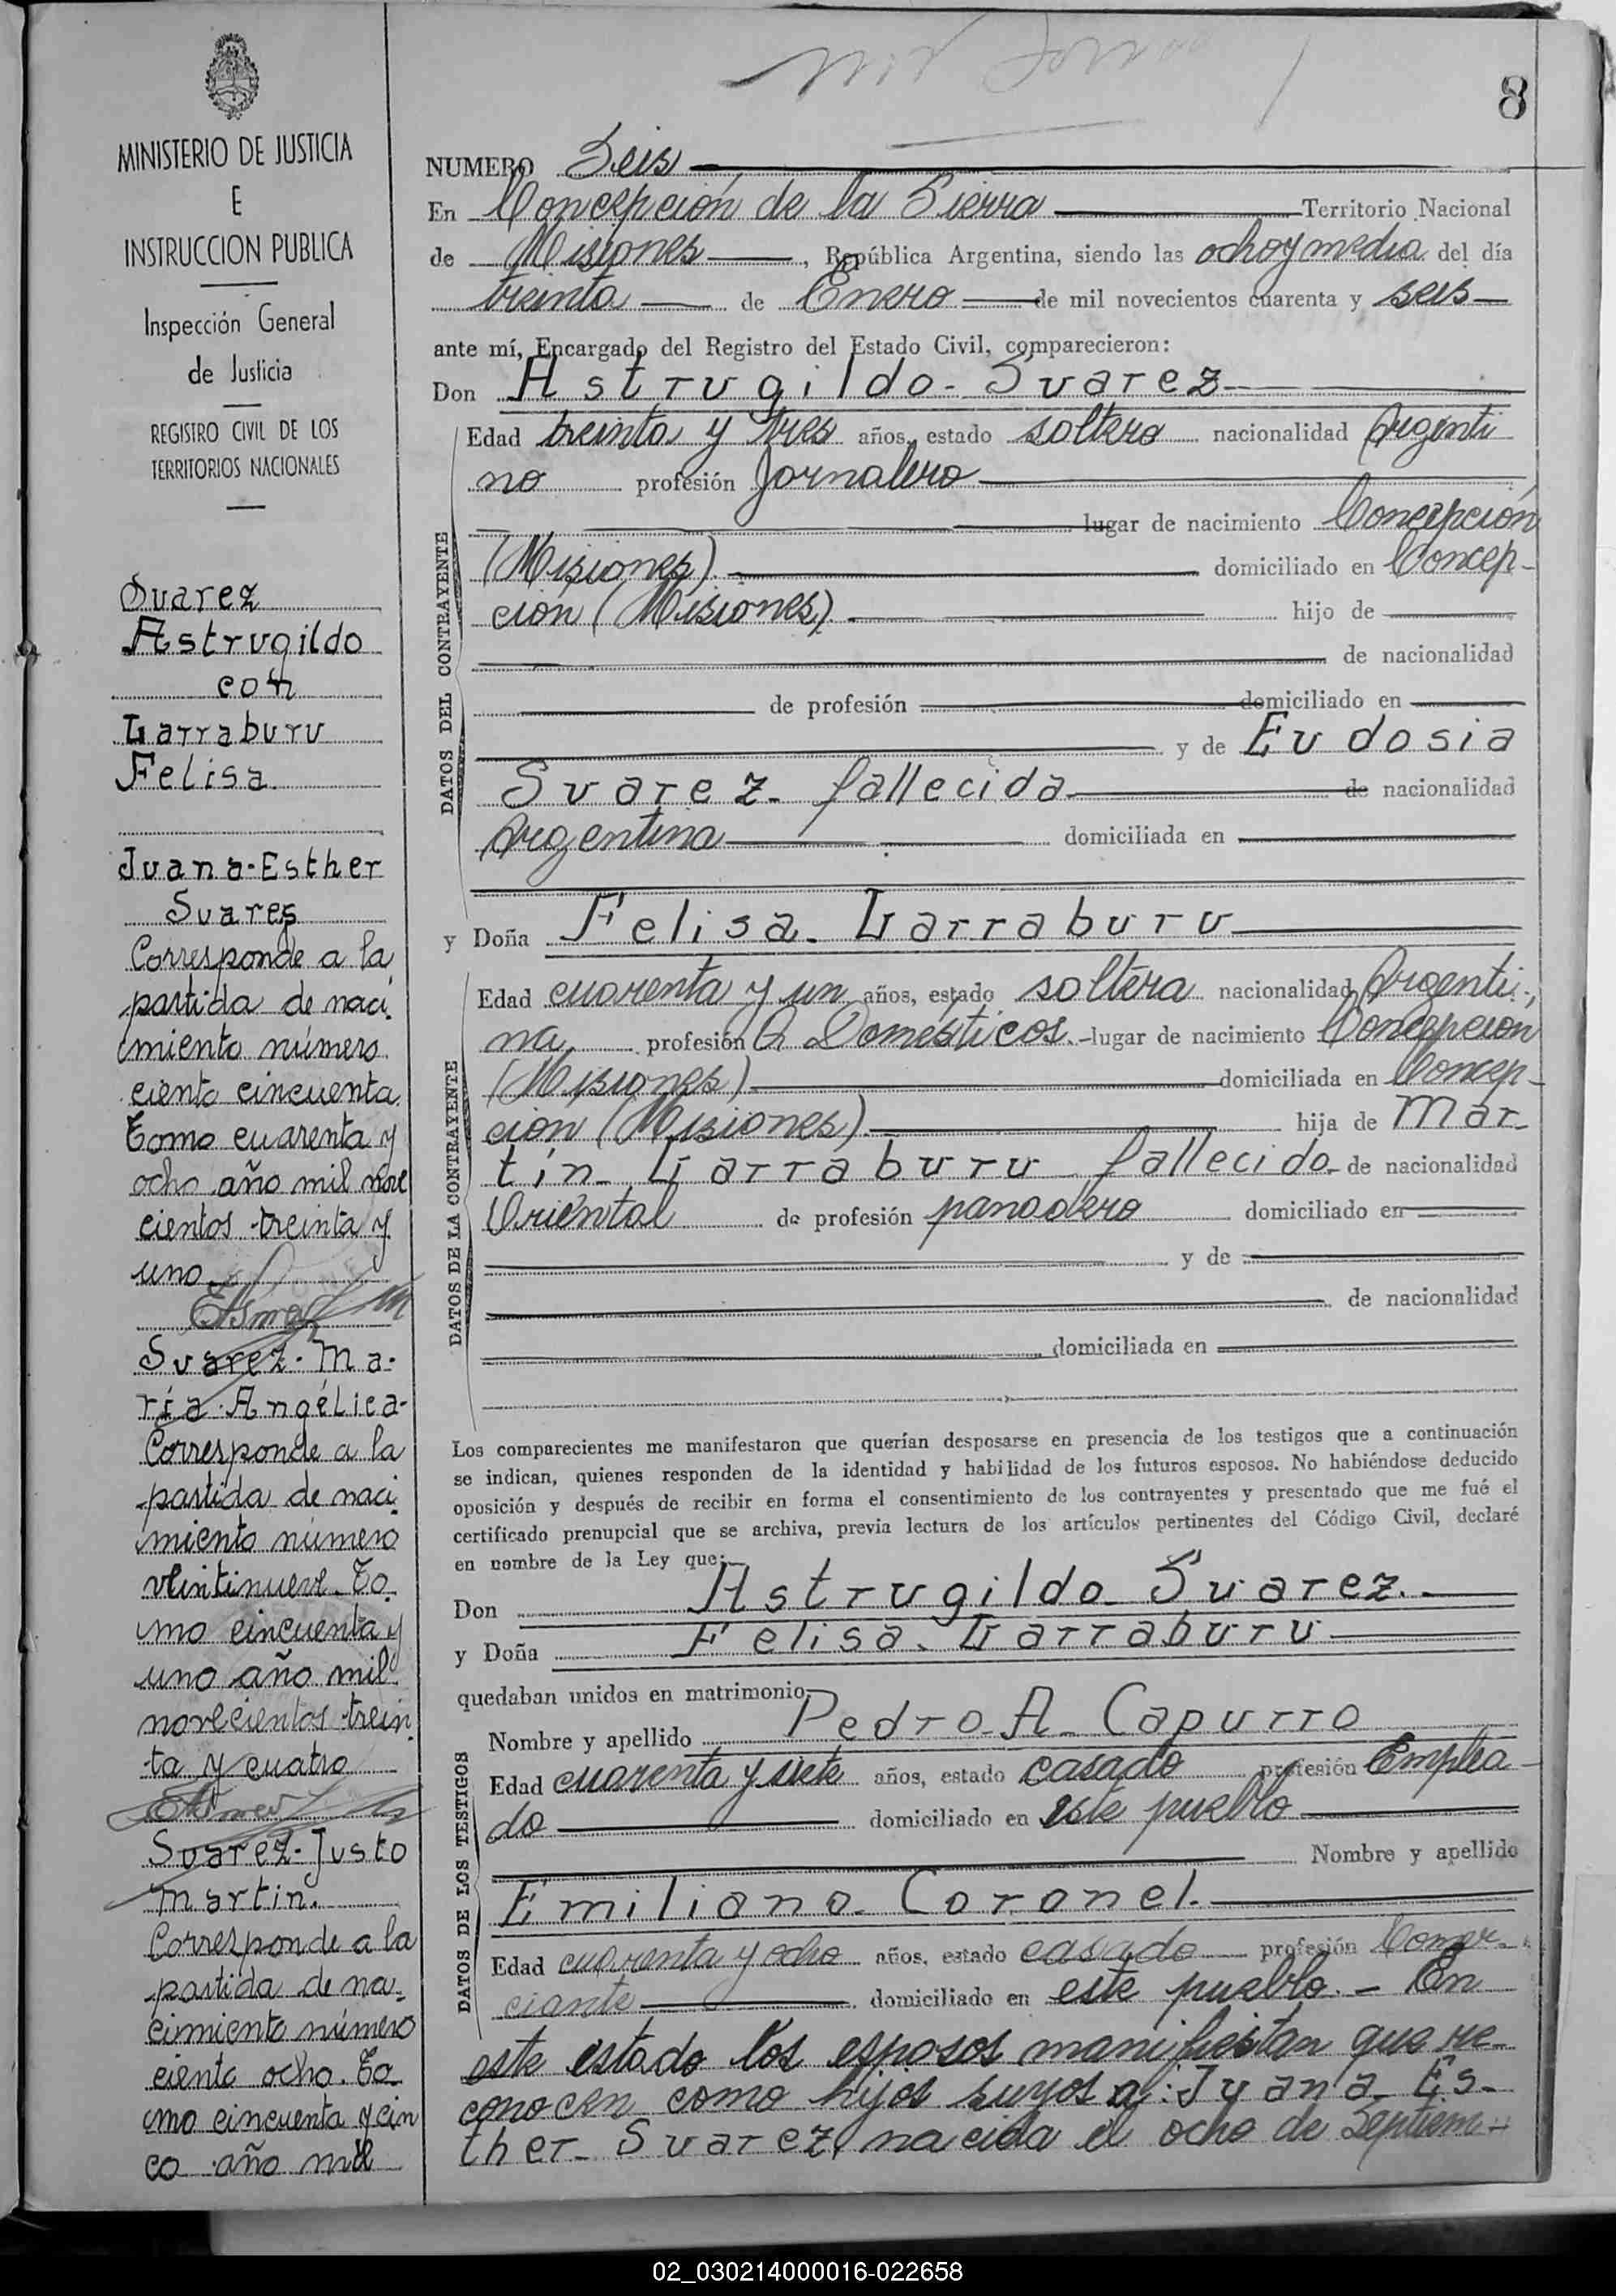 8
MINISTERIO DE JUSTICIA
E
INSTRUCCION PUBLICA
Inspección General
de Justicia
REGISTRO CIVIL DE LOS
TERRITORIOS NACIONALES
Suarez
Astrugildo
con
Larraburu
Felisa
Juana-Esther
Suares
Corresponde a la
partida de naci-
miento número
ciento cincuenta
Tomo cuarenta y
ocho año mil nove
cientos treinta y
uno
Suarez-Ma-
ría Angélica-
Corresponde a la
partida de naci-
miento número
veintinueve. To-
mo cincuenta y
uno año mil
novecientos trein-
ta y cuatro
Suarez-Justo
Martin.
Corresponde a la
partida de na-
cimiento número
ciento ocho. To-
mo cincuenta y cin
co año mil
NUMERO Seis
En Concepción de la Sierra Territorio Nacional
de Misiones, República Argentina, siendo las ocho y media del día
treinta de Enero de mil novecientos cuarenta y seis
ante mí, Encargado del Registro del Estado Civil, comparecieron:
Don Astrugildo-Suarez
DATOS DEL CONTRAYENTE
Edad treinta y tres años, estado soltero nacionalidad Argenti
no profesión Jornalero
lugar de nacimiento Concepción
(Misiones). domiciliado en Concep-
ción (Misiones). hijo de
de nacionalidad
de profesión domiciliado en
y de Eudosia
Suarez- fallecida de nacionalidad
Argentina domiciliada en
y Doña Felisa-Larraburu
DATOS DE LA CONTRAYENTE
Edad cuarenta y un años, estado soltera nacionalidad Argenti-
na profesión Q Domésticos.- lugar de nacimiento Concepción
(Misiones) domiciliada en Concep-
ción (Misiones). hija de Mar-
tín- Larraburu fallecido- de nacionalidad
Oriental de profesión panadero domiciliado en
y de
de nacionalidad
domiciliada en
Los comparecientes me manifestaron que querían desposarse en presencia de los testigos que a continuación
se indican, quienes responden de la identidad y habilidad de los futuros esposos. No habiéndose deducido
oposición y después de recibir en forma el consentimiento de los contrayentes y presentado que me fué el
certificado prenupcial que se archiva, previa lectura de los artículos pertinentes del Código Civil, declaré
en nombre de la Ley que:
Don Astrugildo-Suarez.-
y Doña Felisa-Larraburu
quedaban unidos en matrimonio.
DATOS DE LOS TESTIGOS
Nombre y apellido Pedro-A-Capurro
Edad cuarenta y siete años, estado casado profesión Emplea-
do domiciliado en este pueblo
Nombre y apellido
Emiliano-Coronel.
Edad cuarenta y ocho años, estado casado profesión Comer-
ciante domiciliado en este pueblo.- En
este estado los esposos manifiestan que re-
conocen como hijos suyos a: Juana-Es-
ther-Suarez, nacida el ocho de Septiem-
02_030214000016-022658